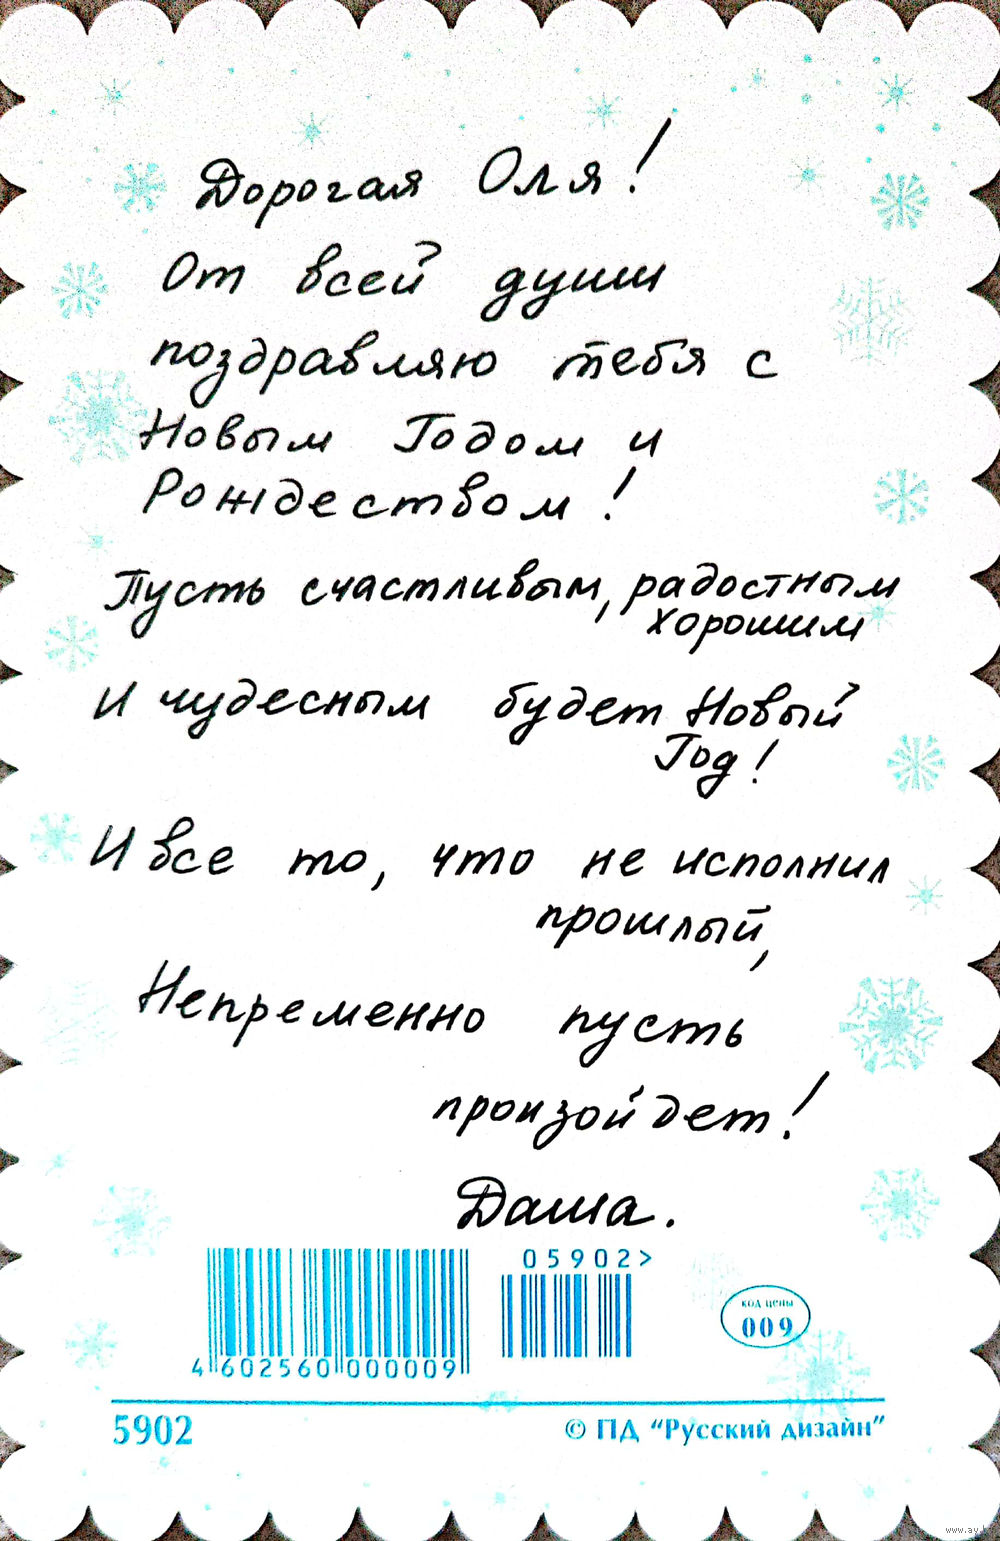 Дорогая Оля!
От всей души
поздравляю тебя с
Новым Годом и
Рождеством!
Пусть счастливым, радостным
хорошим
И чудесным будет Новый
Год!
И все то, что не исполнил
прошлый,
Непременно пусть
произойдет!
Даша.
05902>
4 602560 000009
код цены
009
5902
© ПД “Русский дизайн”